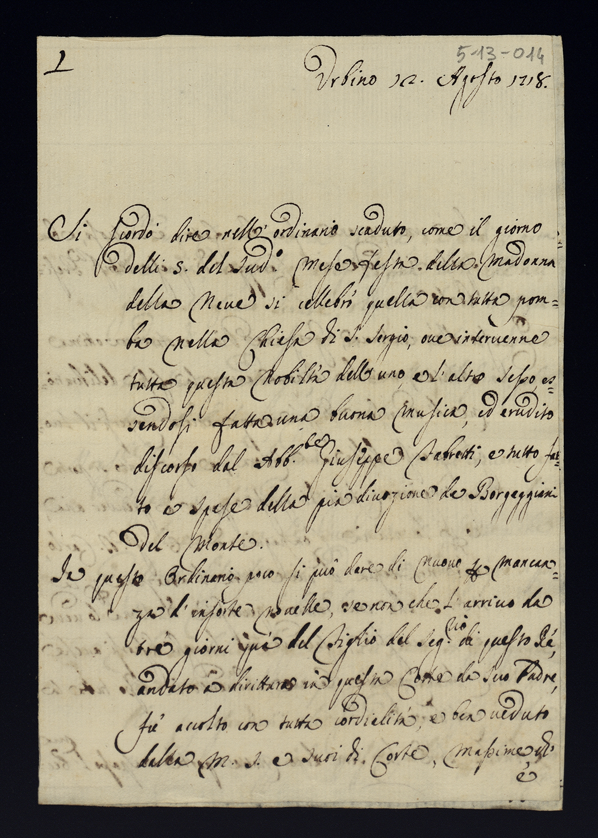 1
5-13-014
Urbino 12. Agosto 1718.
Si scordò dire nell' ordinario scaduto, come il giorno
delli 5. del sud.º Mese Festa della Madonna
della Neve si cellebrò quella con tutta pom=
ba nella Chiesa di S. Sergio, ove intervenne
tutta questa Nobiltà dell' uno, e l'altro sesso, es=
sendosi fatta una buona Musica, ed erudito
discorso dal Abb. Giuseppe e tutto fat=
to a spese della pia divozione de Borgeggiani
del Monte.
In questo Ordinario poco si può dare di nuovo p mancan=
za d'insorte novelle, se non che l'arrivo da
trè giorni quà del Figlio del Seg.rio di questo Rè,
andato à dirittura in questa Corte da suo Padre,
fù accolto con tutta cordialità, e ben veduto
dalla M. S. e suoi di Corte, Massime
è